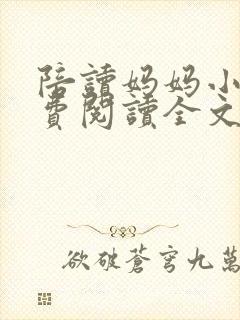 陪讀妈妈小
費閱讀全文
欲破蒼穹九萬